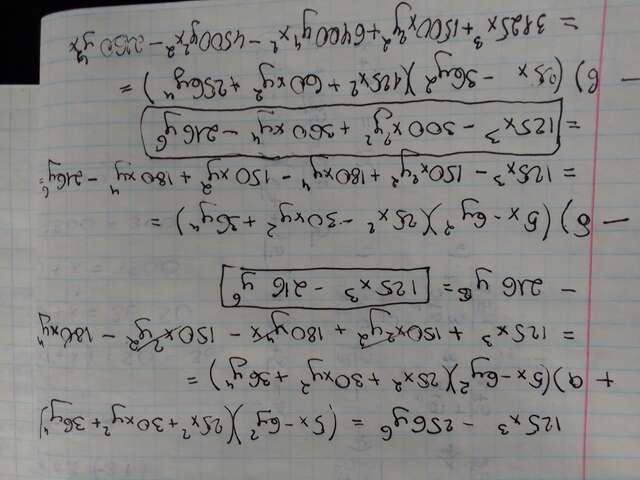 125x³ - 256y⁶ = (5x-6y²)(25x²+30xy²+36y⁴)
+ a) (5x-6y²)(25x²+30xy²+36y⁴) =
= 125x³ + 150x²y² + 180y⁴x - 150x²y² - 180xy⁴
- 216y⁶ = 125x³ - 216y⁶
- б) (5x-6y²)(25x² - 30xy² + 36y⁴) =
= 125x³ - 150x²y² + 180xy⁴ - 150xy² + 180xy⁴ - 216y⁶ =
= 125x³ - 300x²y² + 360xy⁴ - 216y⁶
- в) (25x - 36y²)(125x² + 60xy² + 256y⁴) =
= 3125x³ + 1500x²y² + 6400y⁴x - 4500y²x² - 2160y⁴x